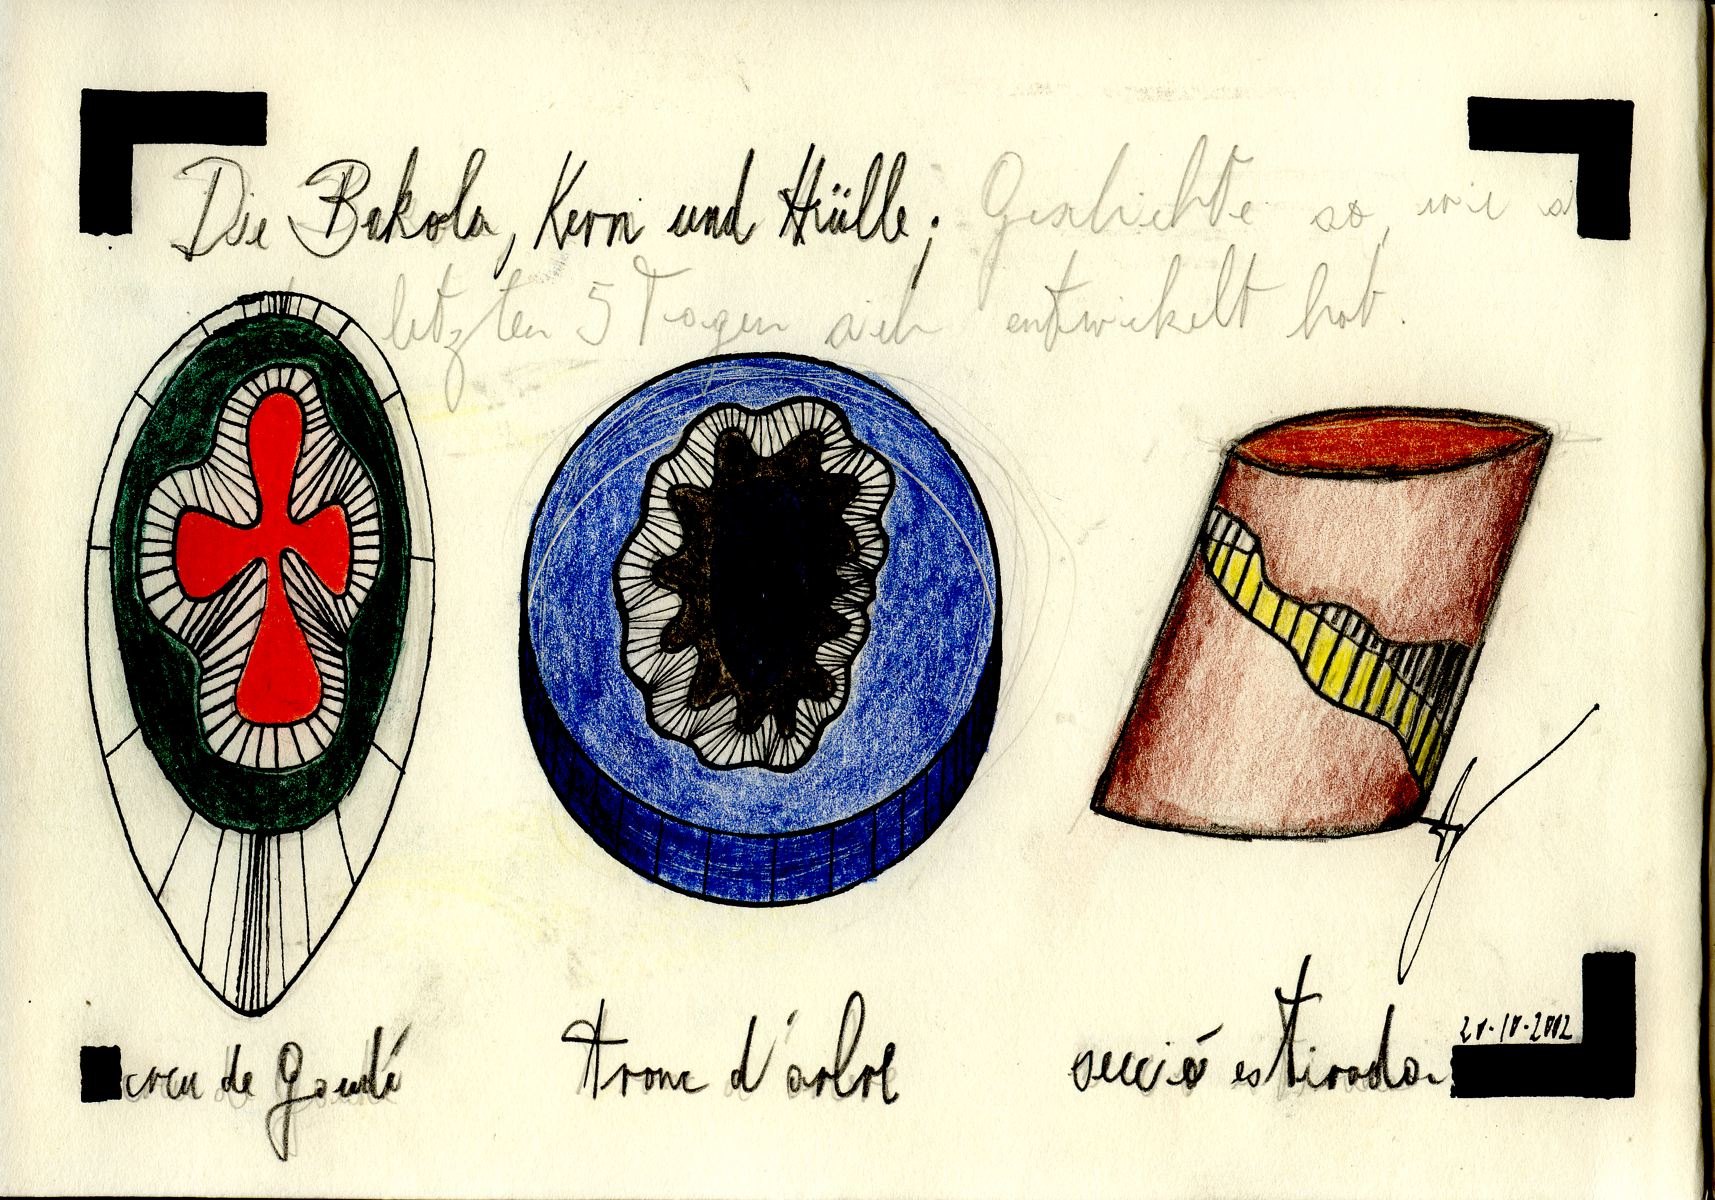 Die Bakola, Kern und Hülle; Geschichte so, wie
letzten 5 Tagen sich entwickelt hat.
creu de Gaudí
tronc d'arbre
secció estirada
20-10-2002